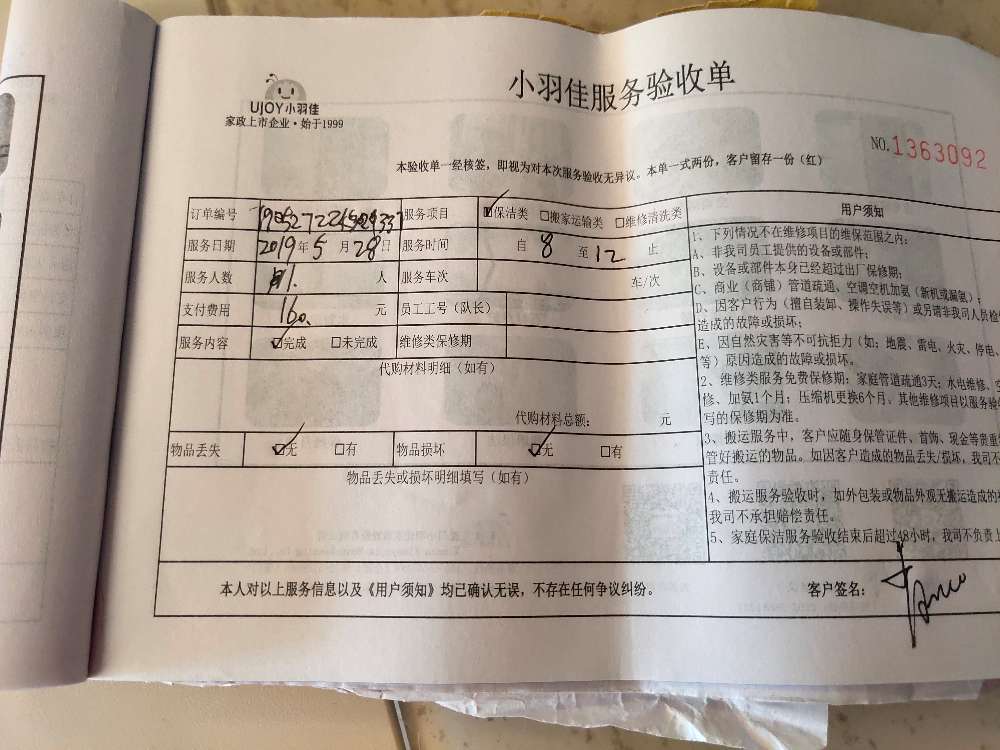 小羽佳服务验收单
UJOY小羽佳
家政上市企业·始于1999
NO.1363092
本验收单一经核签，即视为对本次服务验收无异议。本单一式两份，客户留存一份（红）
订单编号 服务项目 ☑保洁类 □搬家运输类 □维修清洗类
服务日期 2019年5月28日 服务时间 自 8 至 12 止
服务人数 1. 人 服务车次 车/次
支付费用 160. 元 员工工号（队长）
服务内容 ☑完成 □未完成 维修类保修期
代购材料明细（如有）
代购材料总额： 元
物品丢失 ☑无 □有 物品损坏 ☑无 □有
物品丢失或损坏明细填写（如有）
用户须知
1、下列情况不在维修项目的维保范围之内：
A、非我司员工提供的设备或部件；
B、设备或部件本身已经超过出厂保修期；
C、商业（商铺）管道疏通、空调空机加氨（新机或漏氨）；
D、因客户行为（擅自装卸、操作失误等）或另请非我司人员检
造成的故障或损坏；
E、因自然灾害等不可抗拒力（如；地震、雷电、火灾、停电、
等）原因造成的故障或损坏。
2、维修类服务免费保修期：家庭管道疏通3天；水电维修、空
修、加氨1个月；压缩机更换6个月。其他维修项目以服务验
写的保修期为准。
3、搬运服务中，客户应随身保管证件、首饰、现金等贵重
管好搬运的物品。如因客户造成的物品丢失/损坏，我司不
责任。
4、搬运服务验收时，如外包装或物品外观无搬运造成的
我司不承担赔偿责任。
5、家庭保洁服务验收结束后超过48小时，我司不负责上
本人对以上服务信息以及《用户须知》均已确认无误，不存在任何争议纠纷。 客户签名：